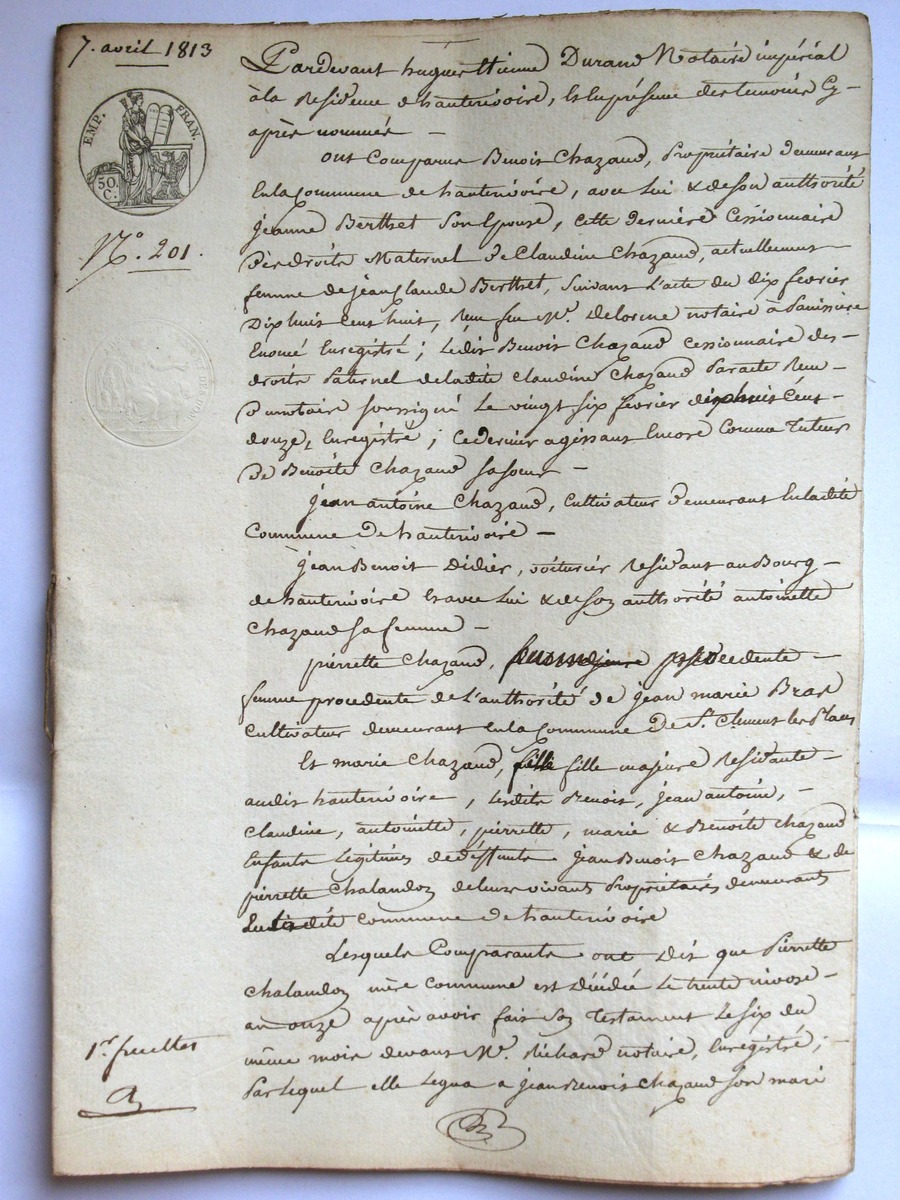 7. avril 1813
EMP. FRAN.
50.
C.
N.° 201.
1.er feuillet
Pardevant hugues Etienne Durand Notaire impérial
à la Residence d'hauterivoire, Et En présence des temoins Cy-
après nommés -
ont Comparus Benoit Chazaud, Propriétaire demeurant
En la Commune de hauterivoire, avec Lui & de son authorité
Jeanne Berthet son Epouse, cette dernière Cessionnaire
Des droits Maternel de Claudine Chazaud, actuellement
femme de jean Claude Berthet, suivant l'acte du dix fevrier
Dix huit cent huit, Reçu feu M.e Delorme notaire à
Enregistré ; Ledit Benoit Chazaud cessionnaire des-
droits Paternel de ladite Claudine Chazaud Par acte Reçu-
du notaire soussigné Le vingt six fevrier dix huit Cent-
douze, Enregistré ; ce dernier agissant Encore Comme Tuteur
De Benoîte Chazaud sa soeur -
Jean antoine Chazaud, Cultivateur demeurant En ladite
Commune de hauterivoire -
Jean Benoit Didier, voiturier Residant au Bourg-
de hauterivoire Et avec Lui & de son authorité antoinette
Chazaud sa femme -
pierrette Chazaud,
femme procedente de l'authorité de jean marie Bras
Cultivateur demeurant en la Commune De S.t Clement les Places
Et marie Chazaud, fille majeure Residante-
audit hauterivoire, lesdits Benoit, jean antoine, -
Claudine, antoinette, pierrette, marie & Benoîte Chazaud
Enfants Légitimes de deffunts Jean Benoit Chazaud & de
pierrette Chalandon de leurs vivants Propriétaires demeurants
commune de hauterivoire
Lesquels Comparants ont Dit que Pierrette
Chalandon mère commune est Décédée Le trente nivose-
an onze après avoir fait son Testament Le six du
même mois devant M.e Richard notaire, Enregistré, -
Par lequel elle Legua a jean Benoit Chazaud son mari